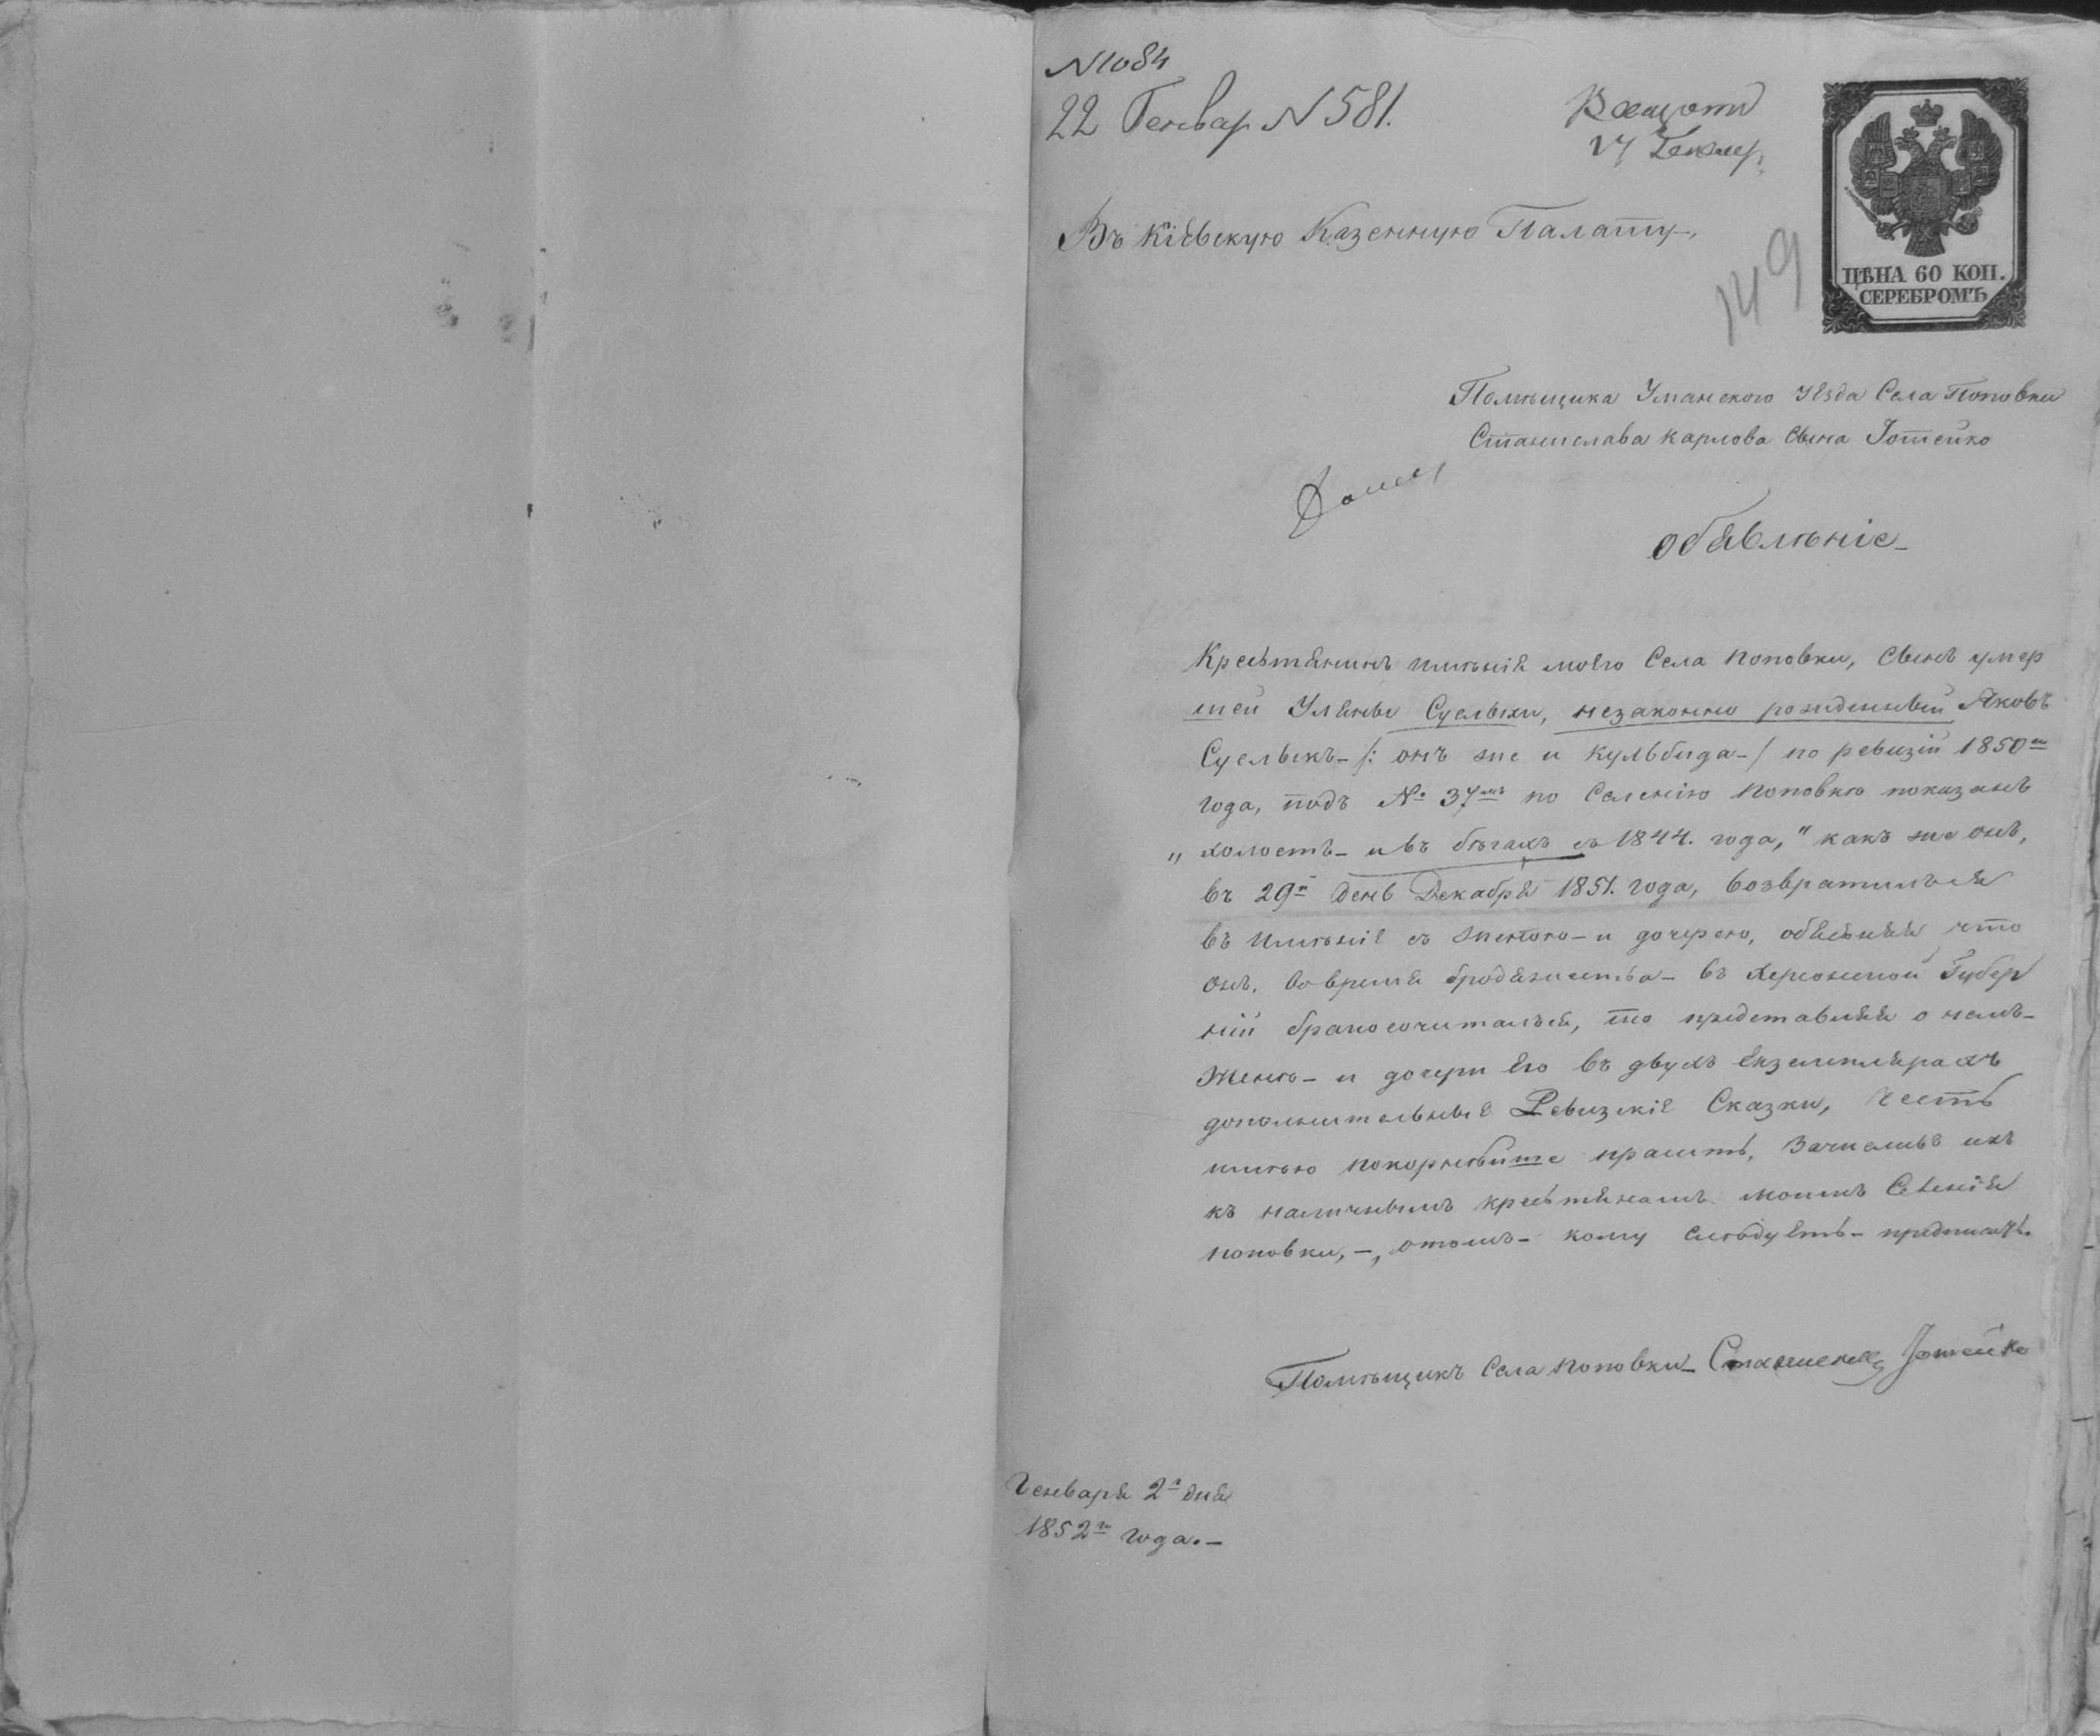 N 1084
22 Генвар N 581.
24 Генвар.
Въ Кіевскую Казенную Палату,
ЦѢНА 60 КОП.
СЕРЕБРОМЪ
149
Помѣщика Уманского Уезда Села Поповки
Станислава Карлова Сына Іотейко
обявлѣніе
Крестянинъ имѣнія моего Села Поповки, Сынъ умер
шей Уляны Суслыхи, незаконно рожденный Яковъ
Суслыкъ /: онъ же и Кульбида / по ревизіи 1850го
года, подъ № 37мъ по Селенію Поповкѣ показанъ
„ холостъ и въ бѣгахъ съ 1844. года, " какъ же онъ,
въ 29й день Декабря 1851. года, возвратилься
въ имѣніе съ женою и дочерею, обясняя что
онъ, во время бродяжества въ Херсонской Губер
ніи бракосочитался, то представляя о немъ
женѣ и дочери его въ двухъ екземплярахъ
дополнительные Ревизскіе Сказки, честь
имѣю покорнѣйше просить, Зачисливъ ихъ
къ наличнымъ крестянамъ моимъ Селенія
Поповки, —, отомъ кому слѣдуетъ предписать.
Помѣщикъ Села Поповки Станиславъ Іотейко
Генваря 2го дня
1852го года. —